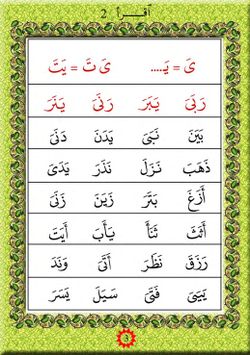 2 أقرأ
ى = يَـ.... ى تَ = يَتَ
رَبَىَ يَبَرَ رَنَىَ يَنَرَ
بَيَنَ نَبَىَ يَدَنَ دَنَىَ
ذَهَبَ نَزَلَ نَذَرَ يَدَىَ
أَزَغَ بَتَرَ زَيَنَ زَنَىَ
أَثَثَ ثَنَأَ يَأَبَ أَيَتَ
رَزَقَ نَظَرَ أَتَىَ وَنَدَ
يَبَيَىَ فَتَىَ سَيَلَ يَسَرَ
3